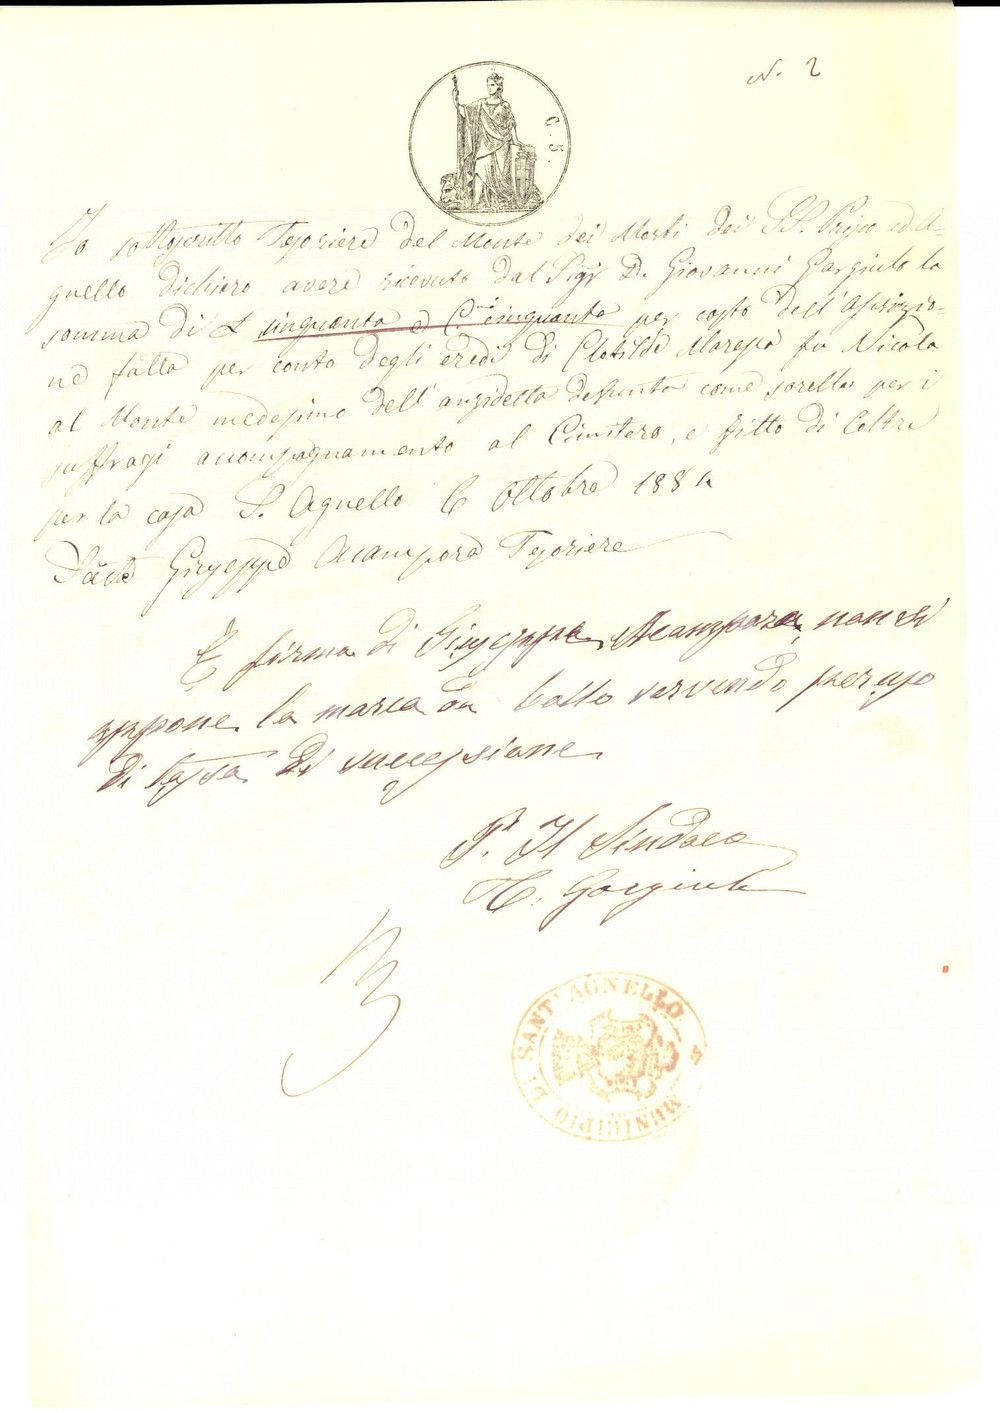 N. 2
C. 5.
Io sottoscritto Tesoriere del Monte dei Morti dei SS. Prisco ed A-
gnello dichiaro avere ricevuto dal Sigr D. Giovanni Gargiulo la
somma di £ cinquanta e C.mi cinquanta per costo dell'ascrizio-
ne fatta per conto degli eredi di Clotilde Maresca fu Nicola
al Monte medesimo dell'anzidetta defunta come sorella per i
suffragi accompagnamento al Cimitero, e fitto di Coltre
per la casa S. Agnello 6 Ottobre 188
Giuseppe Acampora Tesoriere
È firma di Giuseppe Acampora, non si
appone la marca da bollo servendo per uso
di tassa di successione
P. Il Sindaco
Gargiulo
MUNICIPIO DI SANT'AGNELLO